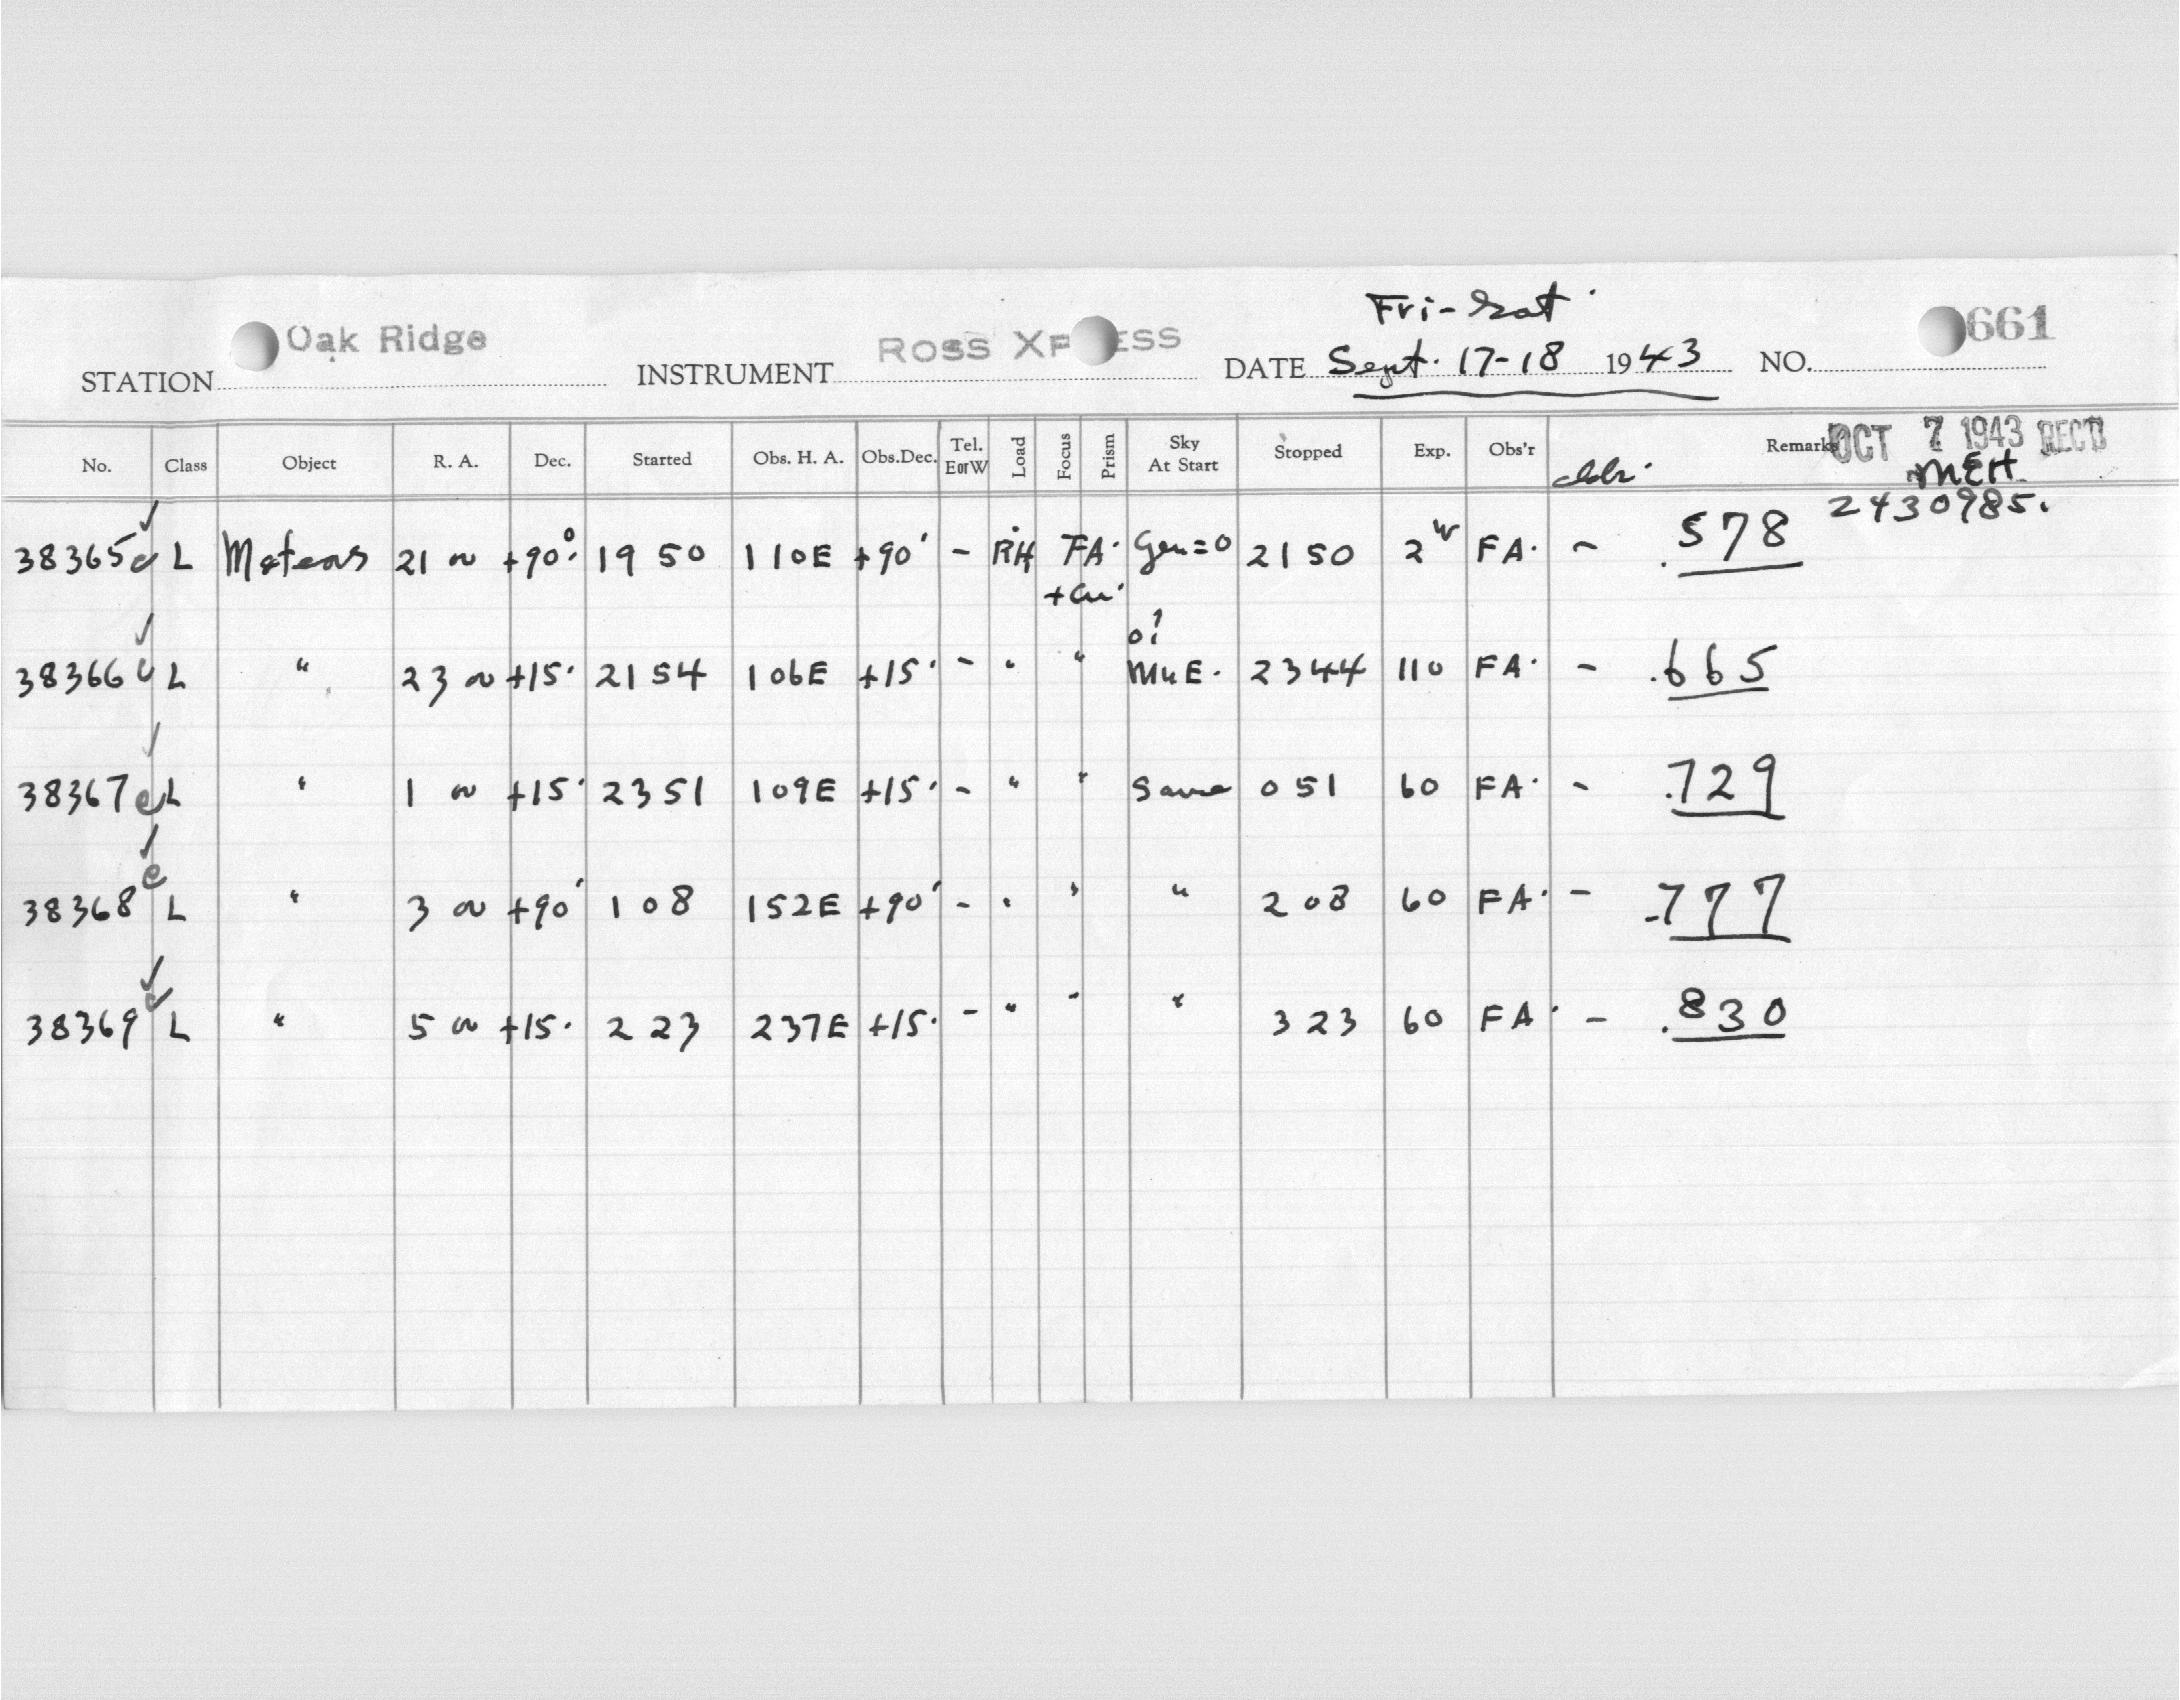 Fri-Sat.
STATION Oak Ridge INSTRUMENT ROSS XP ESS DATE Sept. 17-18 1943 NO. 661
No. Class Object R. A. Dec. Started Obs. H. A. Obs.Dec. Tel. EorW Load Focus Prism Sky At Start Stopped Exp. Obs'r Remarks OCT 7 1943 REC'D
MEH
2430985.
38365 L Meteors 21 ~ +90° 1950 110E +90 - RH FA. Gen=0 2150 2 FA. - .578
0?
38366 L " 23 ~ +15. 2154 106E +15. - " " E. 2344 110 FA. - .665
38367 e L " 1 ~ +15. 2351 109E +15. - " " Same 051 60 FA. - .729
e
38368 L " 3 ~ +90 108 152E +90 - " " " 208 60 FA. - .777
38369 L " 5 ~ +15. 223 237E +15. - " " " 323 60 FA. - .830